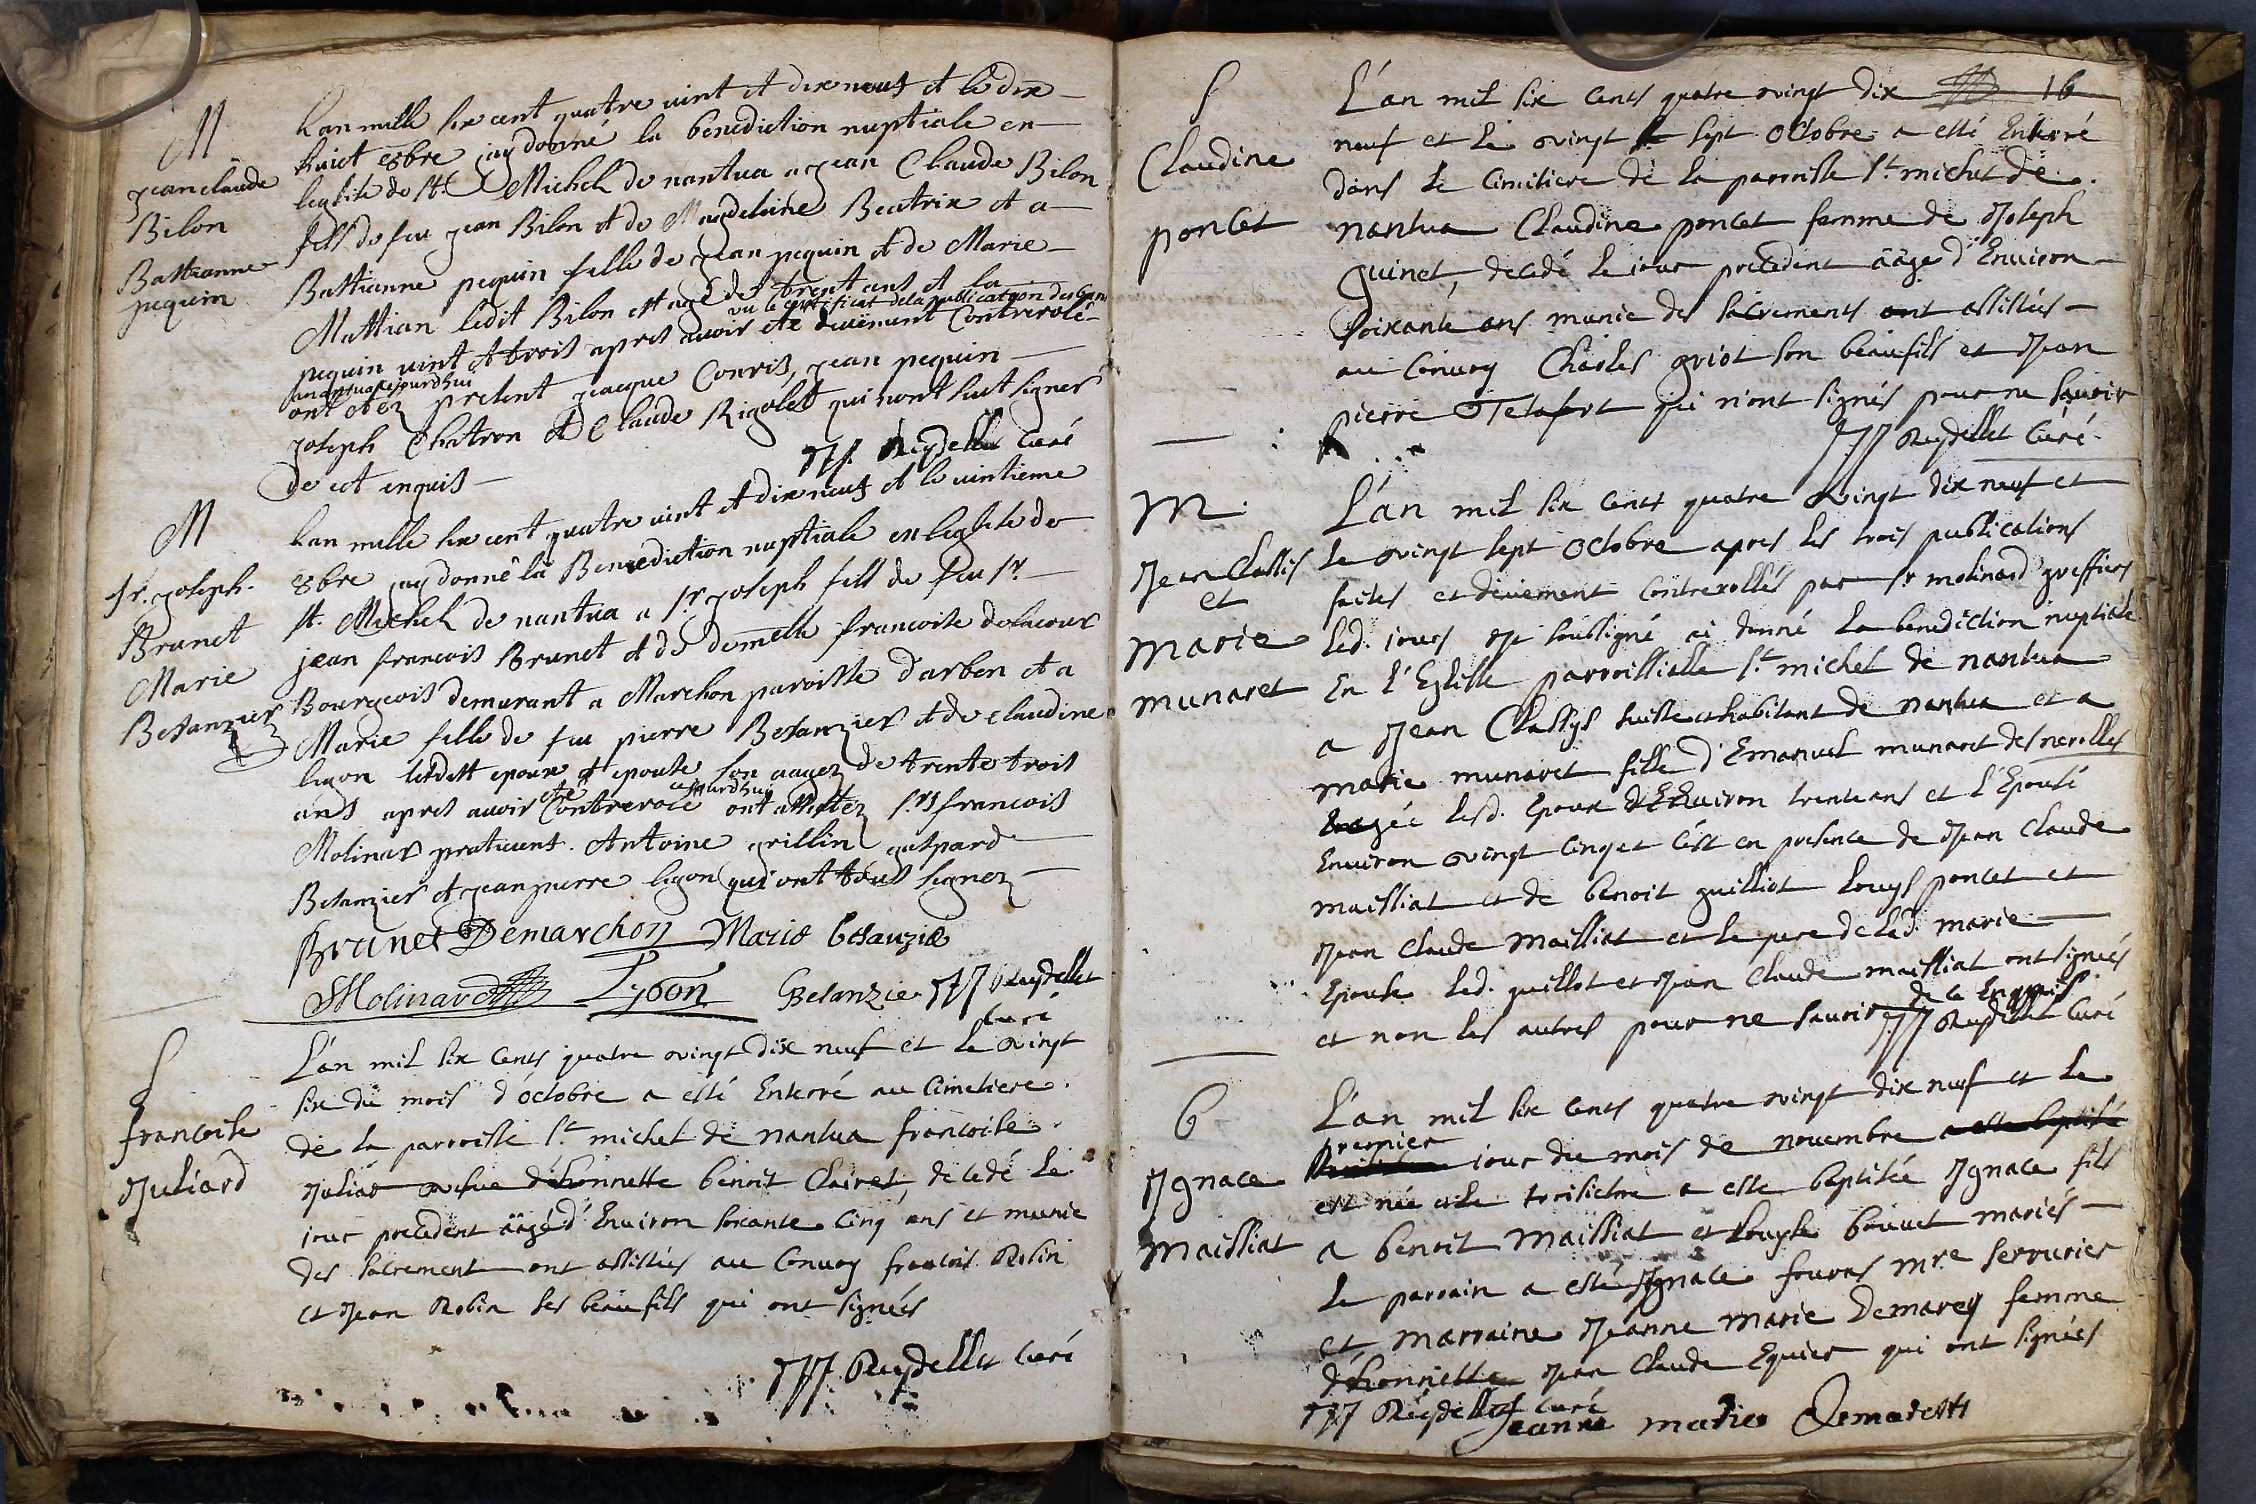 M
Jean claude
Bilon
Battianne
pequin
Lan mille six cent quatre vint et dix neuf et le dix
huict 8bre jay donné la benediction nuptiale en
leglise de st. Michel de nantua a Jean Claude Bilon
fils de feu Jean Bilon et de Magdeleine Beatrix et a
Battianne pequin fille de Jean pequin et de Marie
Mattian ledit Bilon est agé de trent ans et la
vu le certificat de la publication des bans
pequin vint et trois apres avoir ete deuëment Controrolé
a nantua ce jourdhui
ont etez present Jacque Convis, Jean pequin
Joseph Chatron et Claude Rigolet qui nont sceut signer
de ect enquis
JJ Reydellet Curé
M
Sr. Joseph
Brunet
Marie
Besanzier
Lan mille six cent quatre vint et dix neuf et le vintieme
8bre jay donné la Benediction nuptiale en leglise de
st. Michel de nantua a Sr. Joseph fils de feu Sr.
jean francois Brunet et de demelle francoise delacour
Bourgeois demurant a Marchon paroisse d'arben et a
Marie fille de feu pierre Besanzier et de claudine
ligon lesdit epoux et epouse son aagez de trente trois
ans apres avoir eté Controrolé cejourdhuy ont assistez Srs francois
Molinar praticient. Antoine grillin gaspard
Besanzier et Jean pierre ligon qui ont tous signez
Brunet Demarchon Marie besanzie
Molinard Lygon Besanzie JJ Reydellet
Curé
S
francoise
Juliard
L'an mil six cents quatre vingt dix neuf et le vingt
six du mois d'octobre a esté Enterré au Cimetiere
de la parroisse St michel de nantua francoise
Juliar vefue d'honnette benoit Clairet, decedé le
jour precedent äagé d'Environ soixante Cinq ans et munie
des sacrement ont assistés au Convoy francois Robin
et Jean Robin ses beaufils qui ont signées
JJ Reydellet Curé
S
Claudine
poncet
L'an mil six cents quatre vingt dix 16
neuf et le vingt sept Octobre a esté Enterré
dans le Cimitiere de la parroisse St. michel de
nantua Claudine poncet famme de Joseph
guinet, decedé le jour precedent äagé d'Environ
soixante ans munie des sacrements ont assistés
au Convoy Charles griot son beaufils et Jean
pierre qui n'ont signés pour ne sauoir
JJ Reydellet Curé
M.
Jean Classis
et
marie
munaret
L'an mil six cents quatre vingt dix neuf et
le vingt sept Octobre apres les trois publications
faites et deüement Controrollés par Sr molinard greffier
led. jour Je soubsigné ai donné la benediction nuptiale
En l'Eglisse parroissialle St. michel de nantua
a Jean Classys suisse et habitant de nantua et a
marie munaret fille d'Emanuel munaret des nerolles
âagée lesd. Epoux d'Enuiron trente ans et l'Epouse
Enuiron vingt cinq et c'est en presence de Jean Claude
maislliat et de benoit guilliot Louys poncet et
Jean Claude Mailliat et le pere de led. marie
Epouse led. guillot et Jean Claude maislliat ont signés
et non les autres pour ne sauoir de ce Enquis
JJ Reydellet Curé
B
Jgnace
maislliat
L'an mil six cents quatre vingt dix neuf et le
premier jour du mois de novembre a esté baptisé
est née et le troisiesme a este baptisée Jgnace fils
a benoit maislliat et Louyse bouuet mariés
le parrain a esté Jgnace fouras mre serrurier
et marraine Jeanne marie Demarey femme
d'honnette Jean Claude Equier qui ont signées
JJ Reydellet Curé
Jeanne marie